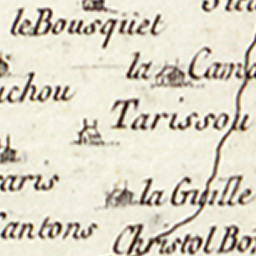 le Bousquet
la Cama
uchou
Tarissou
aris
la Guille
Cantons
Christol Bo